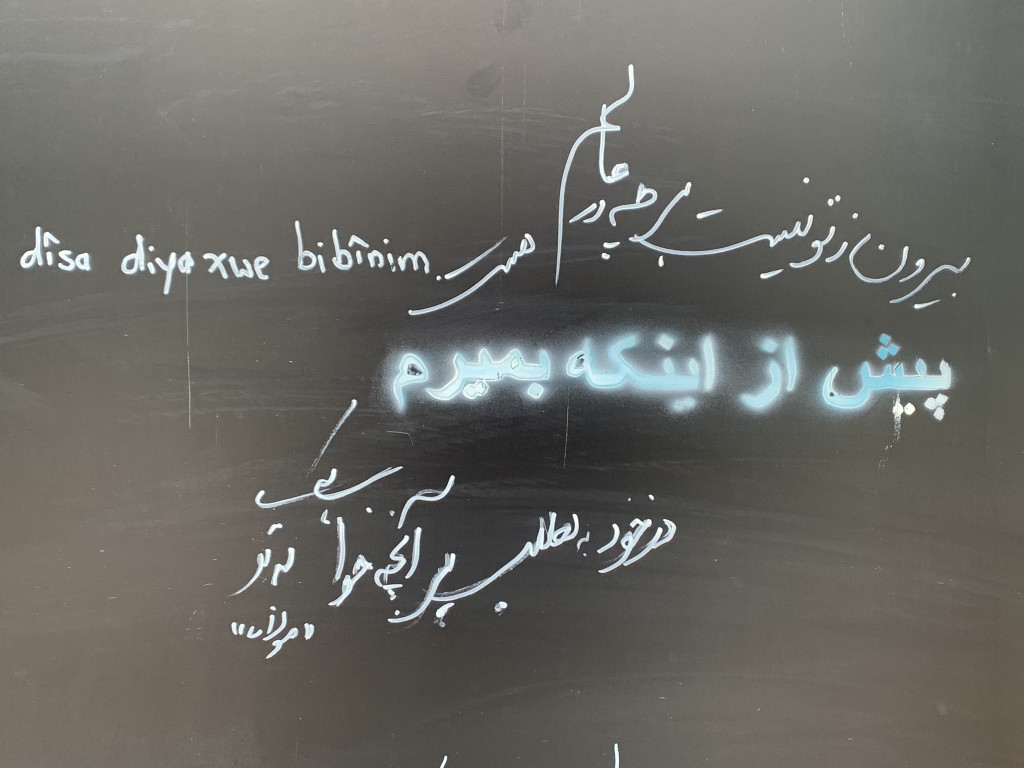 بیرون ز تو نیست هر چه در عالم هست
dîsa diya xwe bibînim
پیش از اینکه بمیرم
در خود به طلب هر آنچه خواهی که تویی
"مولانا"